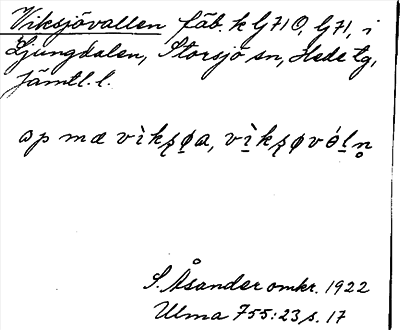 Viksjövallen fäb. k G710, G71, i
Ljungdalen, Storsjö sn, Hede tg,
Jämtl. l.
op mæ vìkʂøa, vìkʂøvóln̥
S. Åsander omkr. 1922
Ulma 755:23 s. 17